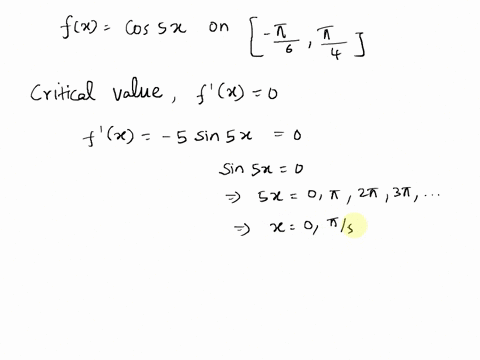 f(x) = cos 5x on [-π/6, π/4]
Critical value, f'(x) = 0
f'(x) = -5 sin 5x = 0
sin 5x = 0
⇒ 5x = 0, π, 2π, 3π, ...
⇒ x = 0, π/5